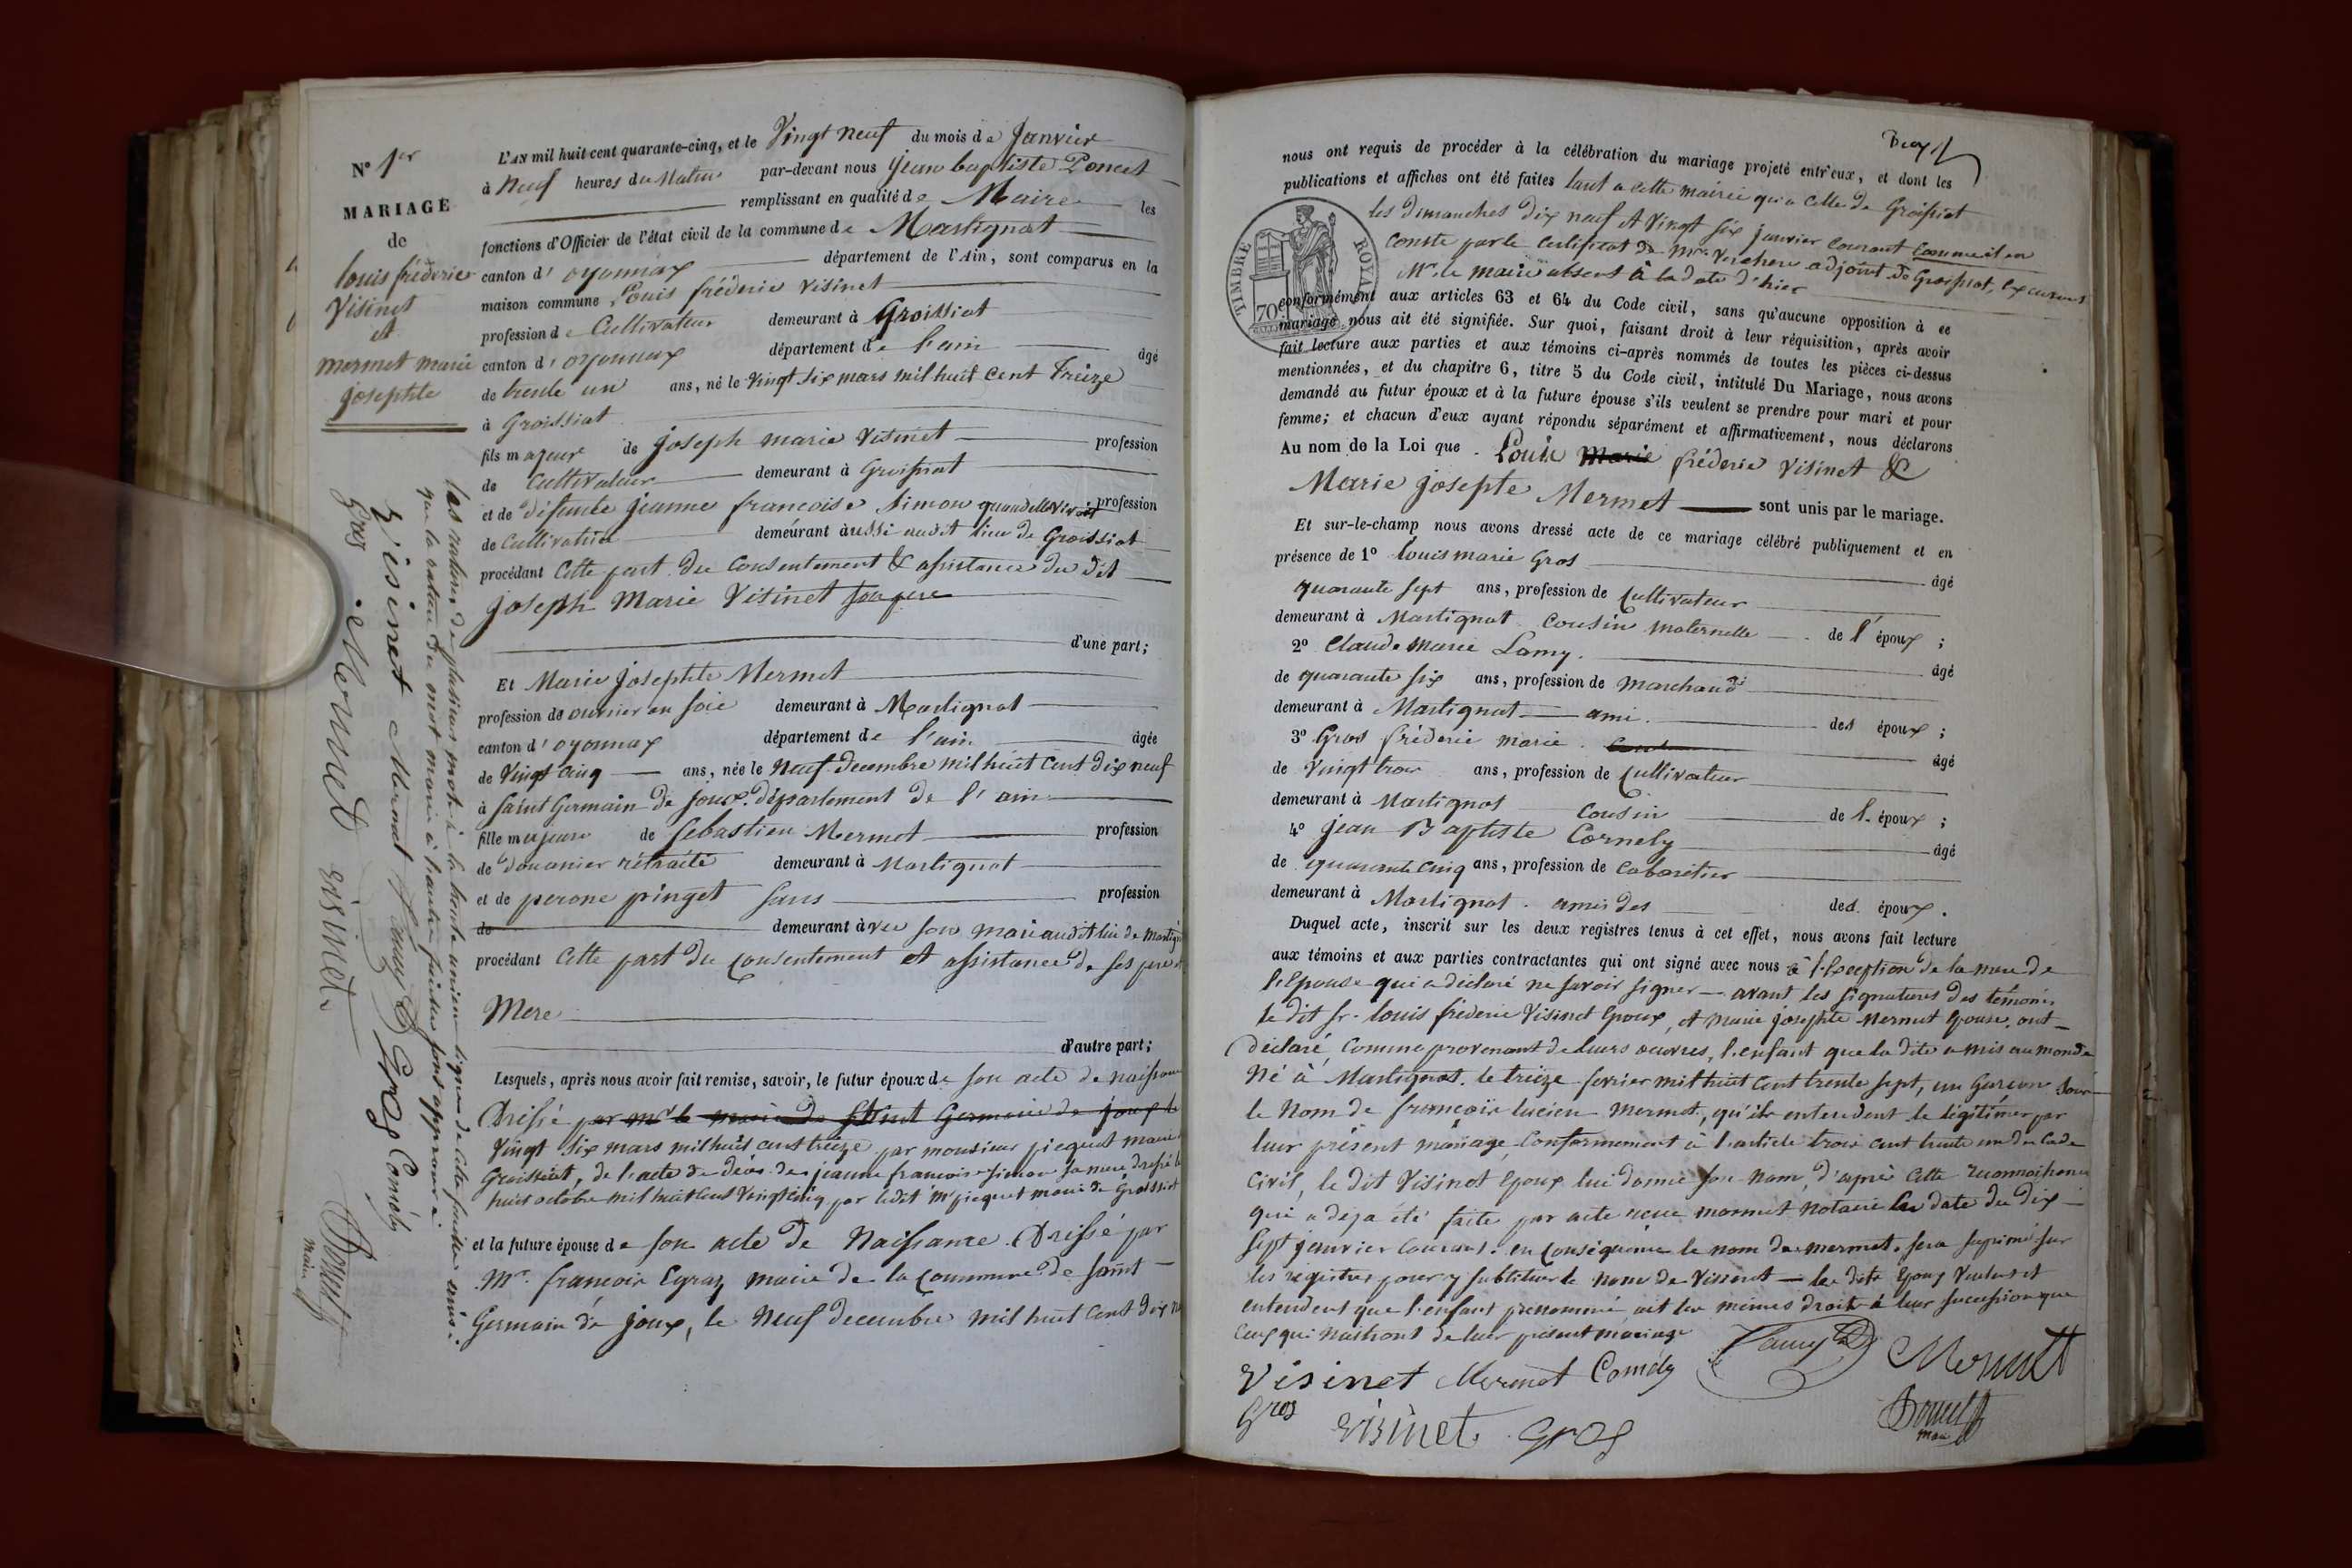 N° 1er
MARIAGE
de
louis fréderic
Visinet
et
mermet marie
josephte
L'AN mil huit cent quarante-cinq, et le Vingt neuf du mois de Janvier
à Neuf heures du Matin par-devant nous jean baptiste Poncet
remplissant en qualité de Maire les
fonctions d'Officier de l'état civil de la commune de Martignat
canton d'oyonnax département de l'Ain, sont comparus en la
maison commune Louis fréderic Visinet
profession de Cultivateur demeurant à Groissiat
canton d'oyonnax département de l'ain âgé
de trente un ans, né le Vingt six mars mil huit cent Treize
à Groissiat
fils majeur de joseph marie Visinet profession
de Cultivateur demeurant à Groissiat
et de défunte jeanne francoise Simon quand elle vivoit profession
de Cultivatrice demeurant aussi audit lieu de Groissiat
procédant Cette part du Consentement & assistance du dit
joseph Marie Visinet son pere
d'une part;
Et Marie Josephte Mermet
profession de ouvrier en soie demeurant à Martignat
canton d'oyonnax département de l'ain âgée
de Vingt Cinq ans, née le Neuf decembre mil huit Cent dix neuf
à Saint Germain de joux. département de l'ain
fille majeure de Sebastien Mermet profession
de douanier rétraité demeurant à Martignat
et de perone pinget Sans profession
de demeurant avec son mari audit lieu de Martignat
procédant Cette part du Consentement et assistance de ses pere et
Mere
d'autre part;
Lesquels, après nous avoir fait remise, savoir, le futur époux de son acte de naissance
Dressé par mr le maire de Saint Germain de joux le
Vingt six mars mil huit cent treize par monsieur picquet maire
Groissiat, de l'acte de décès de jeanne francoise Simon sa mere dressé le
huit octobre mil huit Cent Vingt cinq par ledit Mr picquet maire de Groissiat
et la future épouse de son acte de Naissance. Dressé par
Mr. francois Eyraz maire de la Commune de Saint
Germain de joux, le Neuf decembre mil huit Cent dix
les ratures de plusieurs mots à la trente unieme ligne de cette feuille ainsi
que la rature du mot marie à l'autre feuille sont approuvé
Visinet Mermet Lamy Gros Cornély
Gros Mermet visinet Poncet
maire
nous ont requis de procéder à la célébration du mariage projeté entr'eux, et dont les
publications et affiches ont été faites tant a cette mairie qu'a celle de Groissiat
les dimanches dix neuf et Vingt six janvier Courant Comme il en
Conste par le Certificat de Mr. adjoint de Groissiat,
Mr. le maire absent à la date d'hier
TIMBRE ROYAL
70
conformément aux articles 63 et 64 du Code civil, sans qu'aucune opposition à ce
mariage nous ait été signifiée. Sur quoi, faisant droit à leur réquisition, après avoir
fait lecture aux parties et aux témoins ci-après nommés de toutes les pièces ci-dessus
mentionnées, et du chapitre 6, titre 5 du Code civil, intitulé Du Mariage, nous avons
demandé au futur époux et à la future épouse s'ils veulent se prendre pour mari et pour
femme; et chacun d'eux ayant répondu séparément et affirmativement, nous déclarons
Au nom de la Loi que Louis Marie fréderic Visinet &
Marie josepte Mermet sont unis par le mariage.
Et sur-le-champ nous avons dressé acte de ce mariage célébré publiquement et en
présence de 1° louis marie Gros âgé
quarante sept ans, profession de Cultivateur
demeurant à Martignat Cousin maternelle de l'époux;
2° Claude Marie Lamy. âgé
de quarante six ans, profession de marchand
demeurant à Martignat ami des époux;
3° Gros fréderic marie âgé
de Vingt trois ans, profession de Cultivateur
demeurant à Martignat Cousin de l. époux;
4° jean Baptiste Cornely âgé
de quarante Cinq ans, profession de Cabaretier
demeurant à Martignat. amis des ded. époux.
Duquel acte, inscrit sur les deux registres tenus à cet effet, nous avons fait lecture
aux témoins et aux parties contractantes qui ont signé avec nous à l'Exception de la mere de
l'Epouse qui a déclaré ne savoir signer — avant les signatures des témoins
le dit sr. louis fréderic Visinet Epoux, et Marie josephte Mermet Epouse, ont
déclaré, Comme provenant de leurs oeuvres, l'enfant que la dite a mis au monde
Né à Martignat. le treize fevrier mil huit Cent trente sept, un Garcon sous
le Nom de francois lucien Mermet, qu'ils entendent le légitimer par
leur présent mariage, Conformement à l'article trois Cent trente un du Code
Civil, le dit Visinet Epoux lui donne son Nom, d'aprè Cette reconnoissance
qui a deja été faite par acte recue mermet Notaire la date du dix
Sept janvier Courant. en Conséquence le nom de mermet. sera suprimé sur
les registres pour y substituer le nom de Visinet — les dits Epoux Veulent et
entendent que l'enfant prenommé ait les mêmes droits à leur succession que
Ceux qui Naitront de leur présent mariage
Visinet Mermet Cornély Lamy Mermet
Gros visinet Gros Poncet
maire